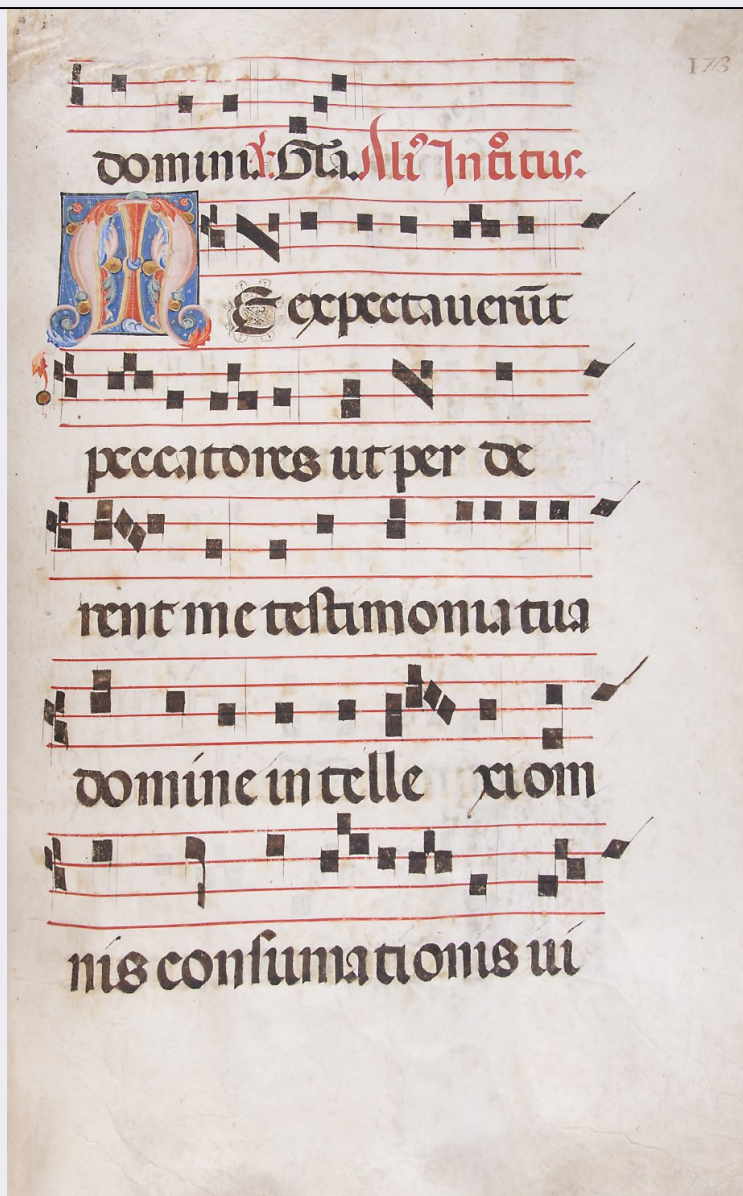 173
domini. ℣. Gl̄a. Ali᾽ Intͦitus.
ME expectauerūt
peccatores ut per de
rent me testimonia tua
domine intelle xi om
nis consumationis ui